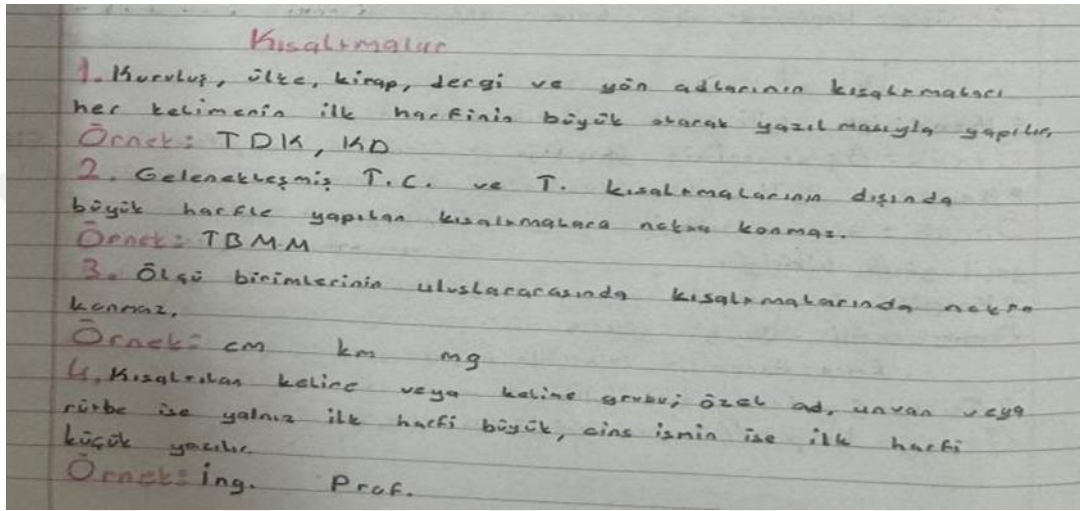 Kısaltmalar
1. Kuruluş, ülke, kitap, dergi ve yön adlarının kısaltmaları
her kelimenin ilk harfinin büyük olarak yazılmasıyla yapılır.
Örnek: TDK, KD
2. Gelenekleşmiş T.C. ve T. kısaltmalarının dışında
büyük harfle yapılan kısaltmalara nokta konmaz.
Örnek: TBMM
3. Ölçü birimlerinin uluslararasında kısaltmalarında nokta
konmaz.
Örnek: cm km mg
4. Kısaltılan kelime veya kelime grubu; özel ad, unvan veya
rütbe ise yalnız ilk harfi büyük, cins ismin ise ilk harfi
küçük yazılır.
Örnek: İng. Prof.